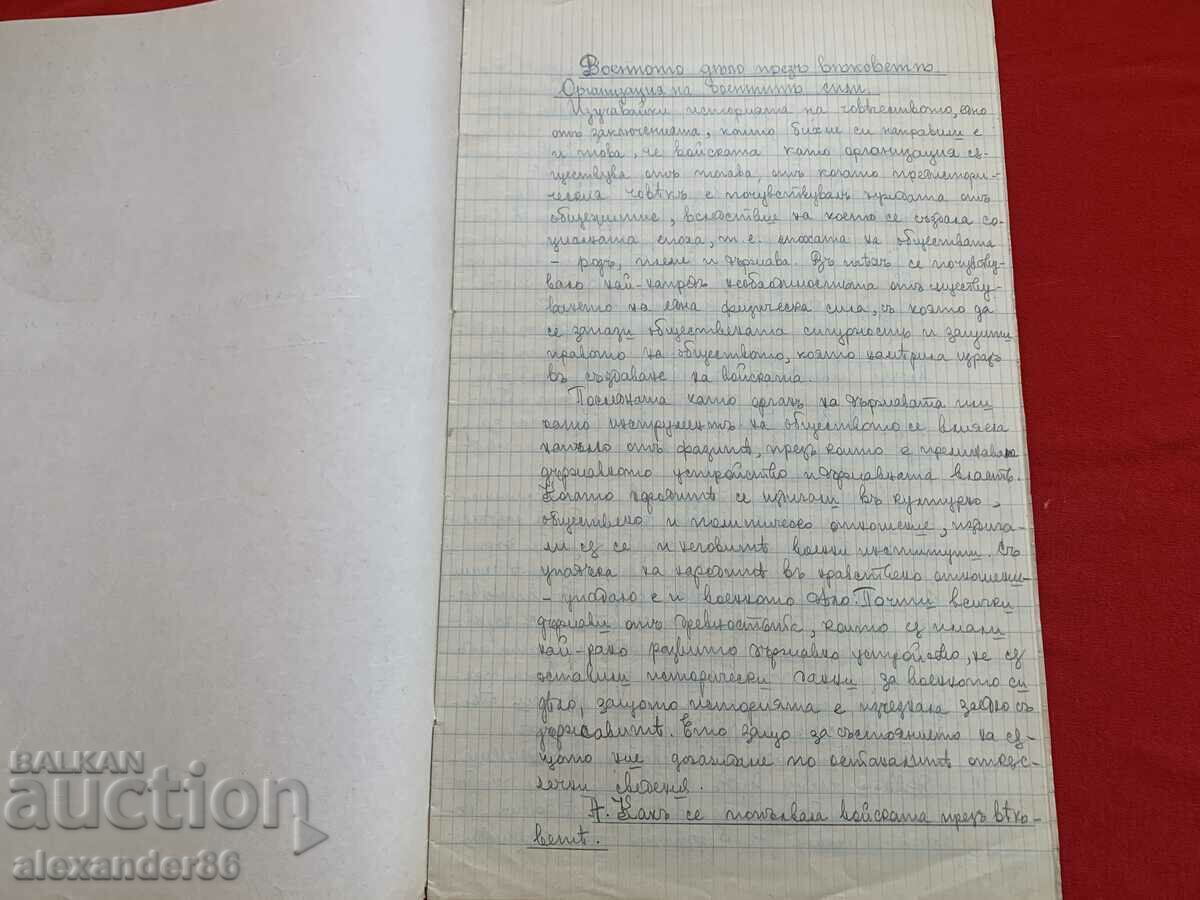 Военното дѣло презъ вѣковетѣ.
Организация на военнитѣ сили.
Изучавайки историята на човѣчеството, едно
отъ заключенията, които бихме си направили е
и това, че войската като организация сѫ-
ществува отъ тогава, отъ когато преистори-
ческия човѣкъ е почувствувалъ нуждата отъ
общежитие, вследствие на което се създала со-
циалната епоха, т.е. епохата на обществата
- родъ, племе и държава. Въ тѣхъ се почувству-
вало най-напредъ необходимостьта отъ сѫществу-
ването на една физическа сила, съ която да
се запази обществената сигурность и защити
правото на обществото, която намѣрила изразъ
въ създаване на войската.
Последната като органъ на държавата или
като инструментъ на обществото се влияела
напълно отъ фазитѣ, презъ които е преминавало
държавното устройство и държавната власть.
Когато народитѣ се издигали въ културно,
обществено и политическо отношение, издига-
ли сѫ се и неговитѣ военни институти. Съ
упадъка на народитѣ въ нравствено отношение
- упадало е и военното дѣло. Почти всички
държави отъ древностьта, които сѫ имали
най-рано развито държавно устройство, не сѫ
оставили исторически данни за военното си
дѣло, защото историята е изчезнала заедно съ
държавитѣ. Ето защо за състоянието на сѫ-
щото ние догаждаме по останалитѣ откъс-
лечни сведения.
А. Какъ се попълвала войската презъ вѣко-
ветѣ.
BALKAN
auction
alexander86